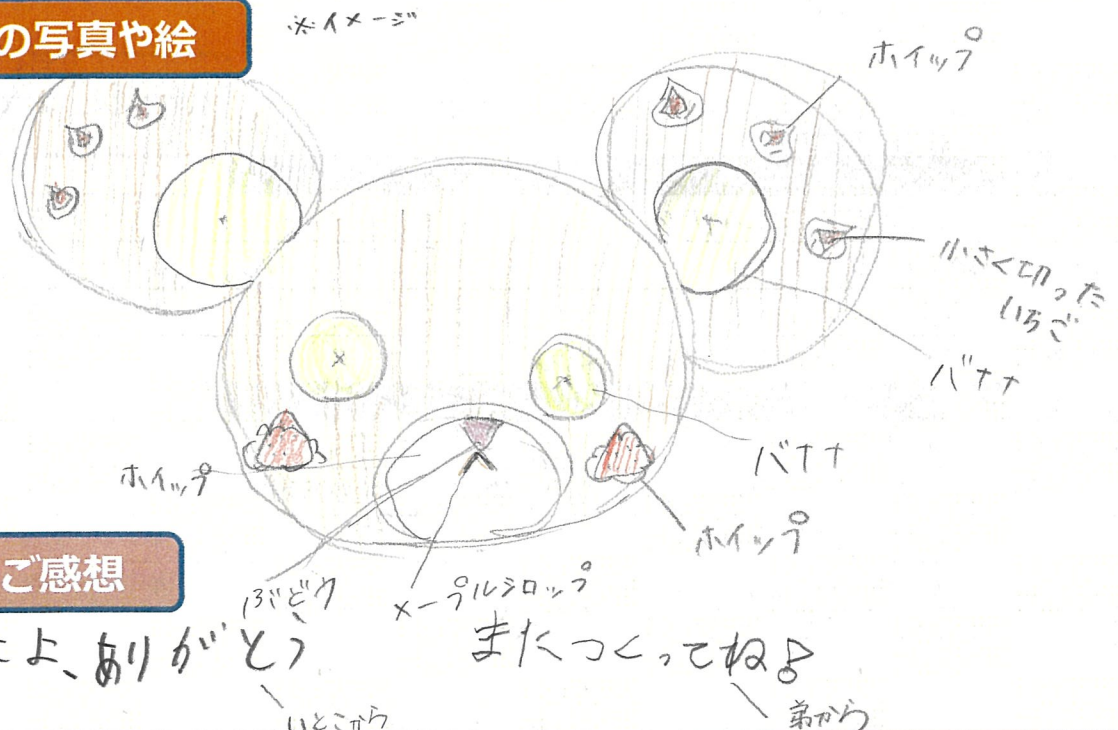 の写真や絵
※イメージ
ホイップ
小さく切った
いちご
バナナ
バナナ
ホイップ
ホイップ
ぶどう
メープルシロップ
ご感想
たよ、ありがとう
いとこから
またつくってね♪
弟から